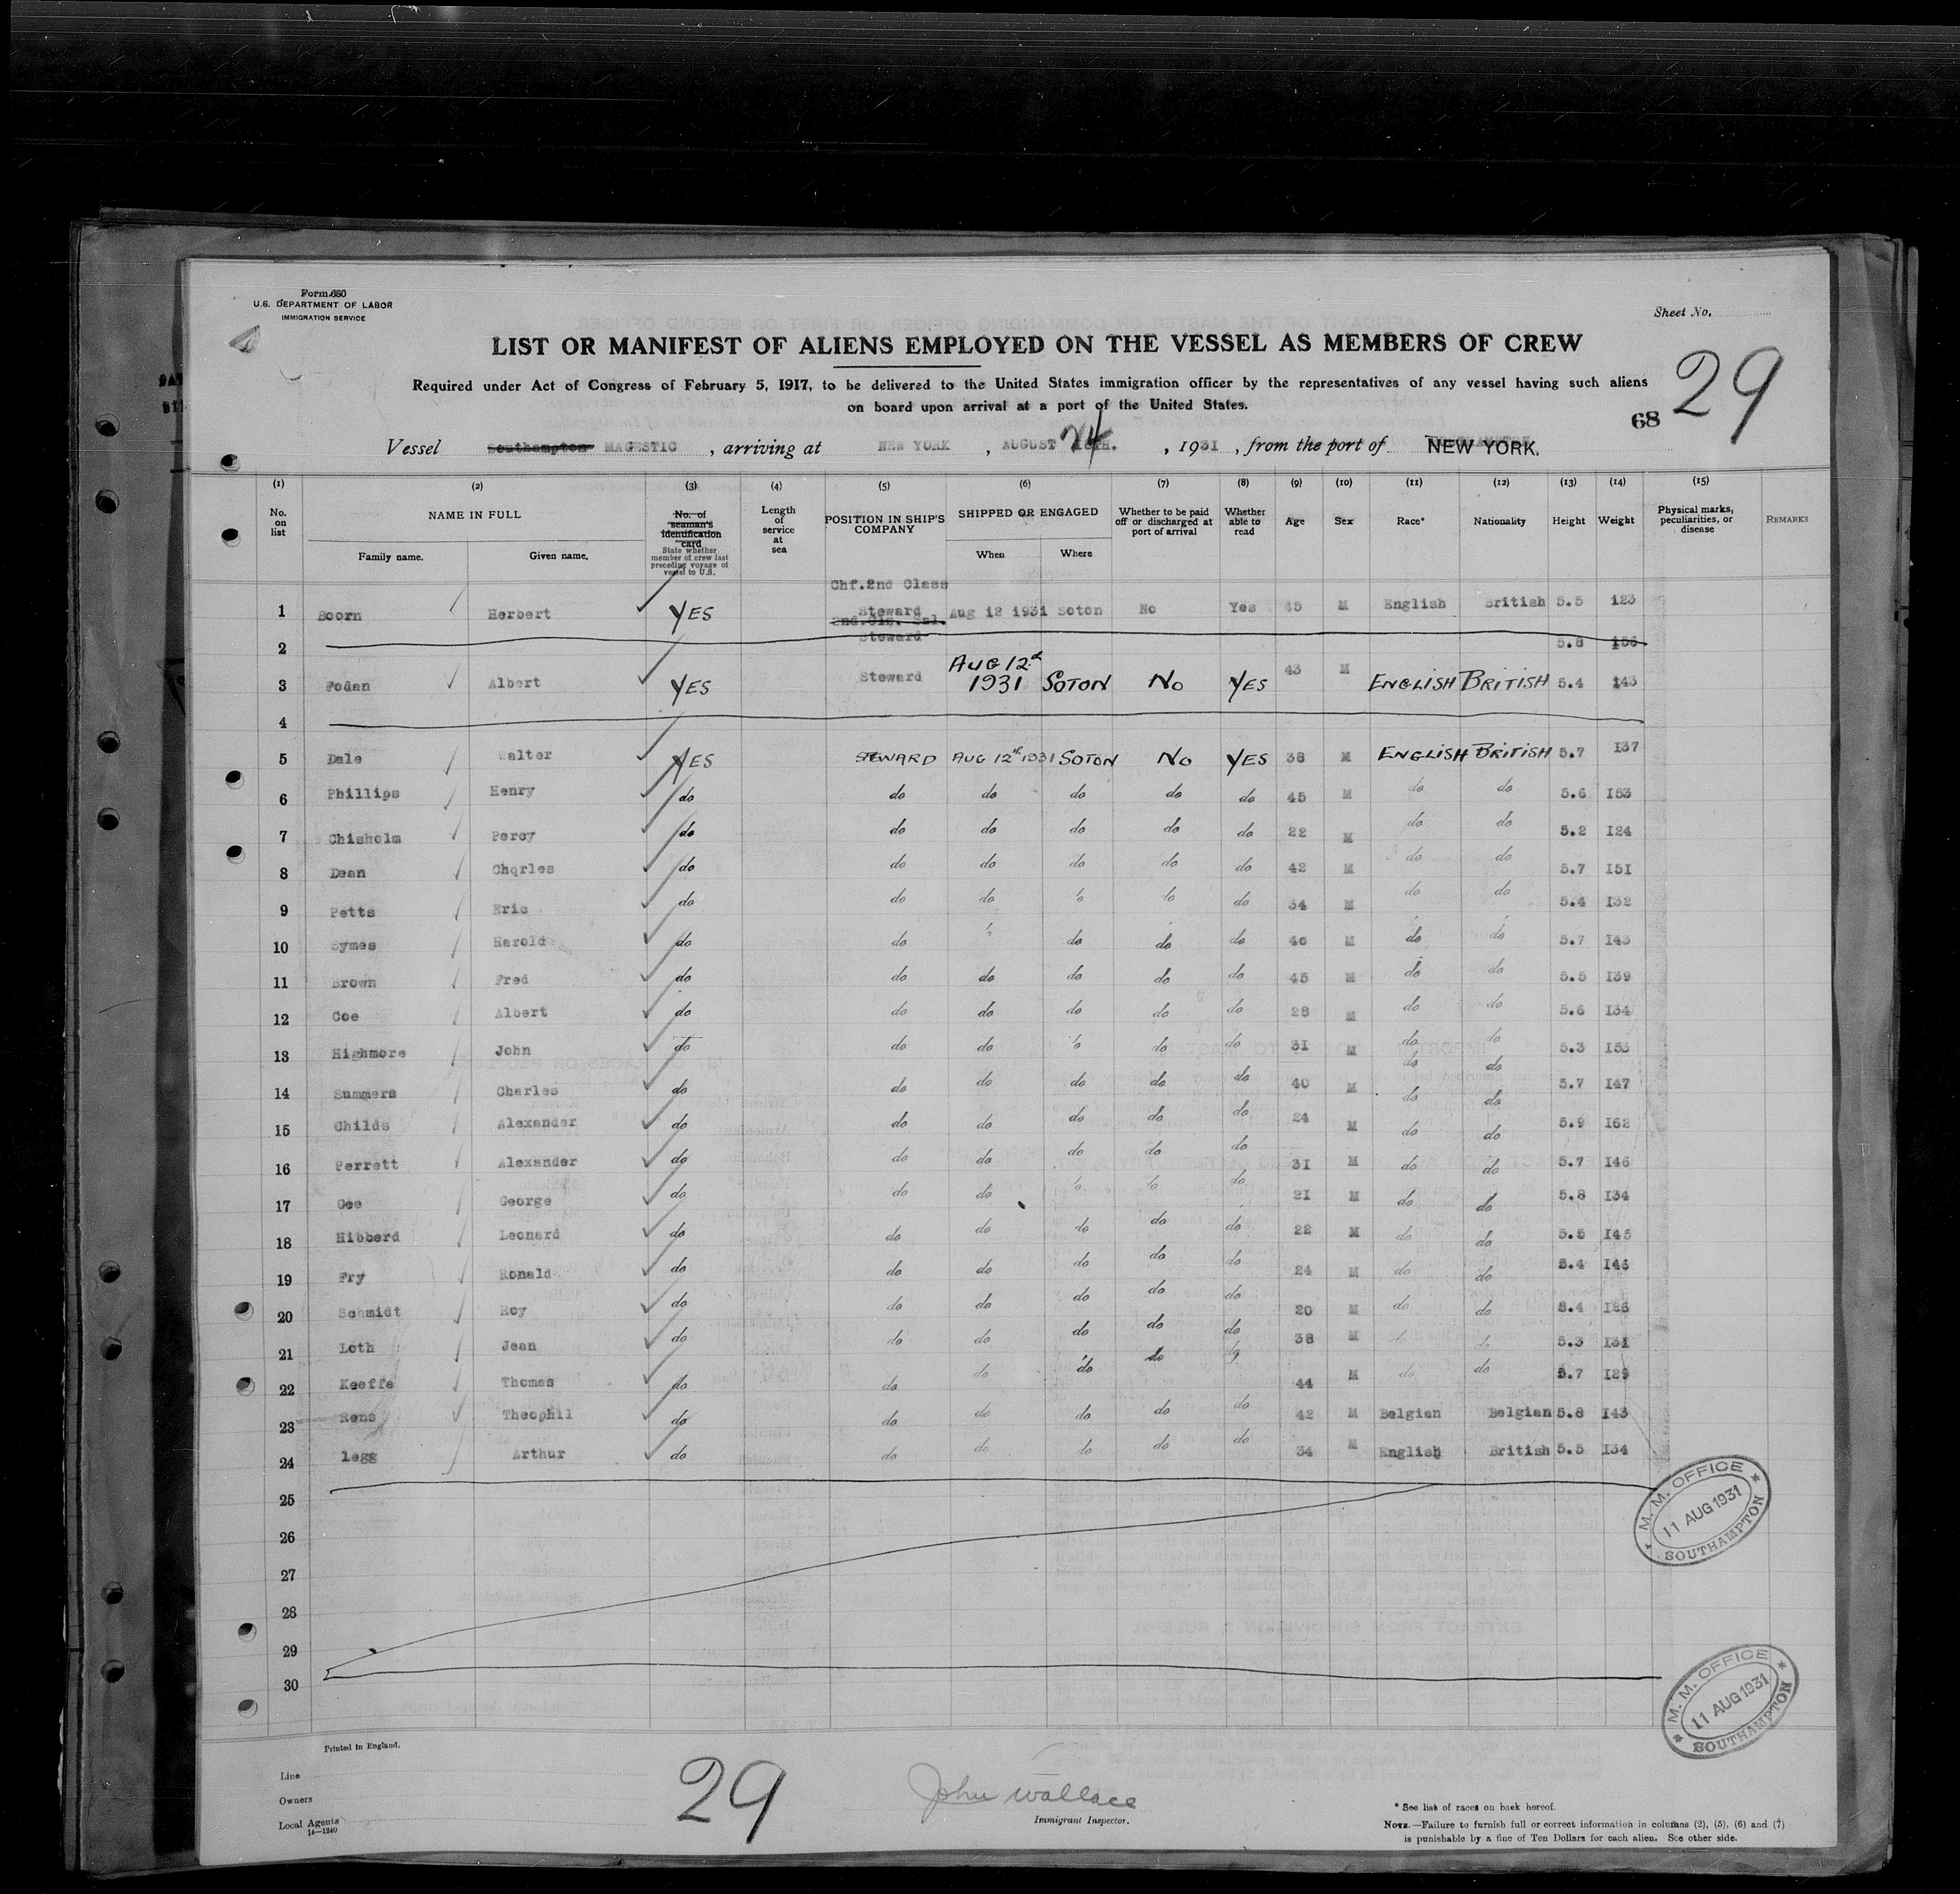 Form 680
U.S. DEPARTMENT OF LABOR
IMMIGRATION SERVICE
Sheet No.
LIST OR MANIFEST OF ALIENS EMPLOYED ON THE VESSEL AS MEMBERS OF CREW
Required under Act of Congress of February 5, 1917, to be delivered to the United States immigration officer by the representatives of any vessel having such aliens
on board upon arrival at a port of the United States.
68 29
Vessel Southampton MAGESTIC , arriving at NEW YORK , AUGUST 24 , 1931 , from the port of NEW YORK.
(1) (2) (3) (4) (5) (6) (7) (8) (9) (10) (11) (12) (13) (14) (15)
No. on list NAME IN FULL Family name. Given name. No. of seaman's identification card State whether member of crew last preceding voyage of vessel to U.S. Length of service at sea POSITION IN SHIP'S COMPANY SHIPPED OR ENGAGED When Where Whether to be paid off or discharged at port of arrival Whether able to read Age Sex Race* Nationality Height Weight Physical marks, peculiarities, or disease REMARKS
1 Boorn Herbert YES Chf.2nd Class Steward Aug 12 1931 Soton No Yes 45 M English British 5.5 123
2 2nd.Cls. Sal. Steward 5.8 156
3 Fodan Albert YES Steward AUG 12th 1931 SOTON No YES 43 M ENGLISH BRITISH 5.4 143
4
5 Dale Walter YES STEWARD AUG 12th 1931 SOTON No YES 38 M ENGLISH BRITISH 5.7 137
6 Phillips Henry do do do do do do 45 M do do 5.6 153
7 Chisholm Percy do do do do do do 22 M do do 5.2 124
8 Dean Chqrles do do do do do do 42 M do do 5.7 151
9 Petts Eric do do do do do do 34 M do do 5.4 132
10 Symes Harold do do do do do do 40 M do do 5.7 143
11 Brown Fred do do do do do do 45 M do do 5.5 139
12 Coe Albert do do do do do do 28 M do do 5.6 134
13 Highmore John do do do do do do 31 M do do 5.3 153
14 Summers Charles do do do do do do 40 M do do 5.7 147
15 Childs Alexander do do do do do do 24 M do do 5.9 162
16 Perrett Alexander do do do do do do 31 M do do 5.7 146
17 Gee George do do do do do do 21 M do do 5.8 134
18 Hibberd Leonard do do do do do do 22 M do do 5.5 145
19 Fry Ronald do do do do do do 24 M do do 5.4 146
20 Schmidt Roy do do do do do do 20 M do do 5.4 126
21 Loth Jean do do do do do do 38 M do do 5.3 131
22 Keeffe Thomas do do do do do do 44 M do do 5.7 129
23 Rens Theophil do do do do do do 42 M Belgian Belgian 5.8 143
24 legg Arthur do do do do do do 34 M English British 5.5 134
25
26
27
28
29
30
M. M. OFFICE
11 AUG 1931
SOUTHAMPTON
M. M. OFFICE
11 AUG 1931
SOUTHAMPTON
Printed in England.
Line
Owners
Local Agents
14—1240
29
John Wallace
Immigrant Inspector.
* See list of races on back hereof.
NOTE.—Failure to furnish full or correct information in columns (2), (5), (6) and (7)
is punishable by a fine of Ten Dollars for each alien. See other side.